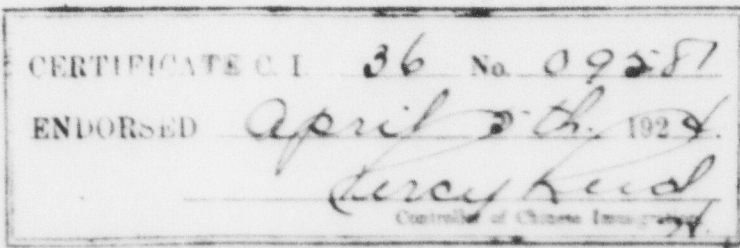 CERTIFICATE C. I. 36 No. 09287
ENDORSED April 5th. 1924.
Percy Reid
Controller of Chinese Immigration